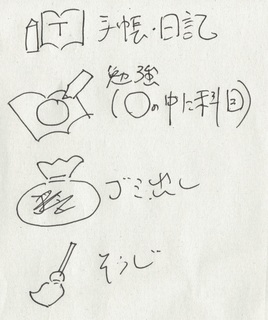 手帳・日記
勉強
(○の中に科目)
ゴミ出し
そうじ